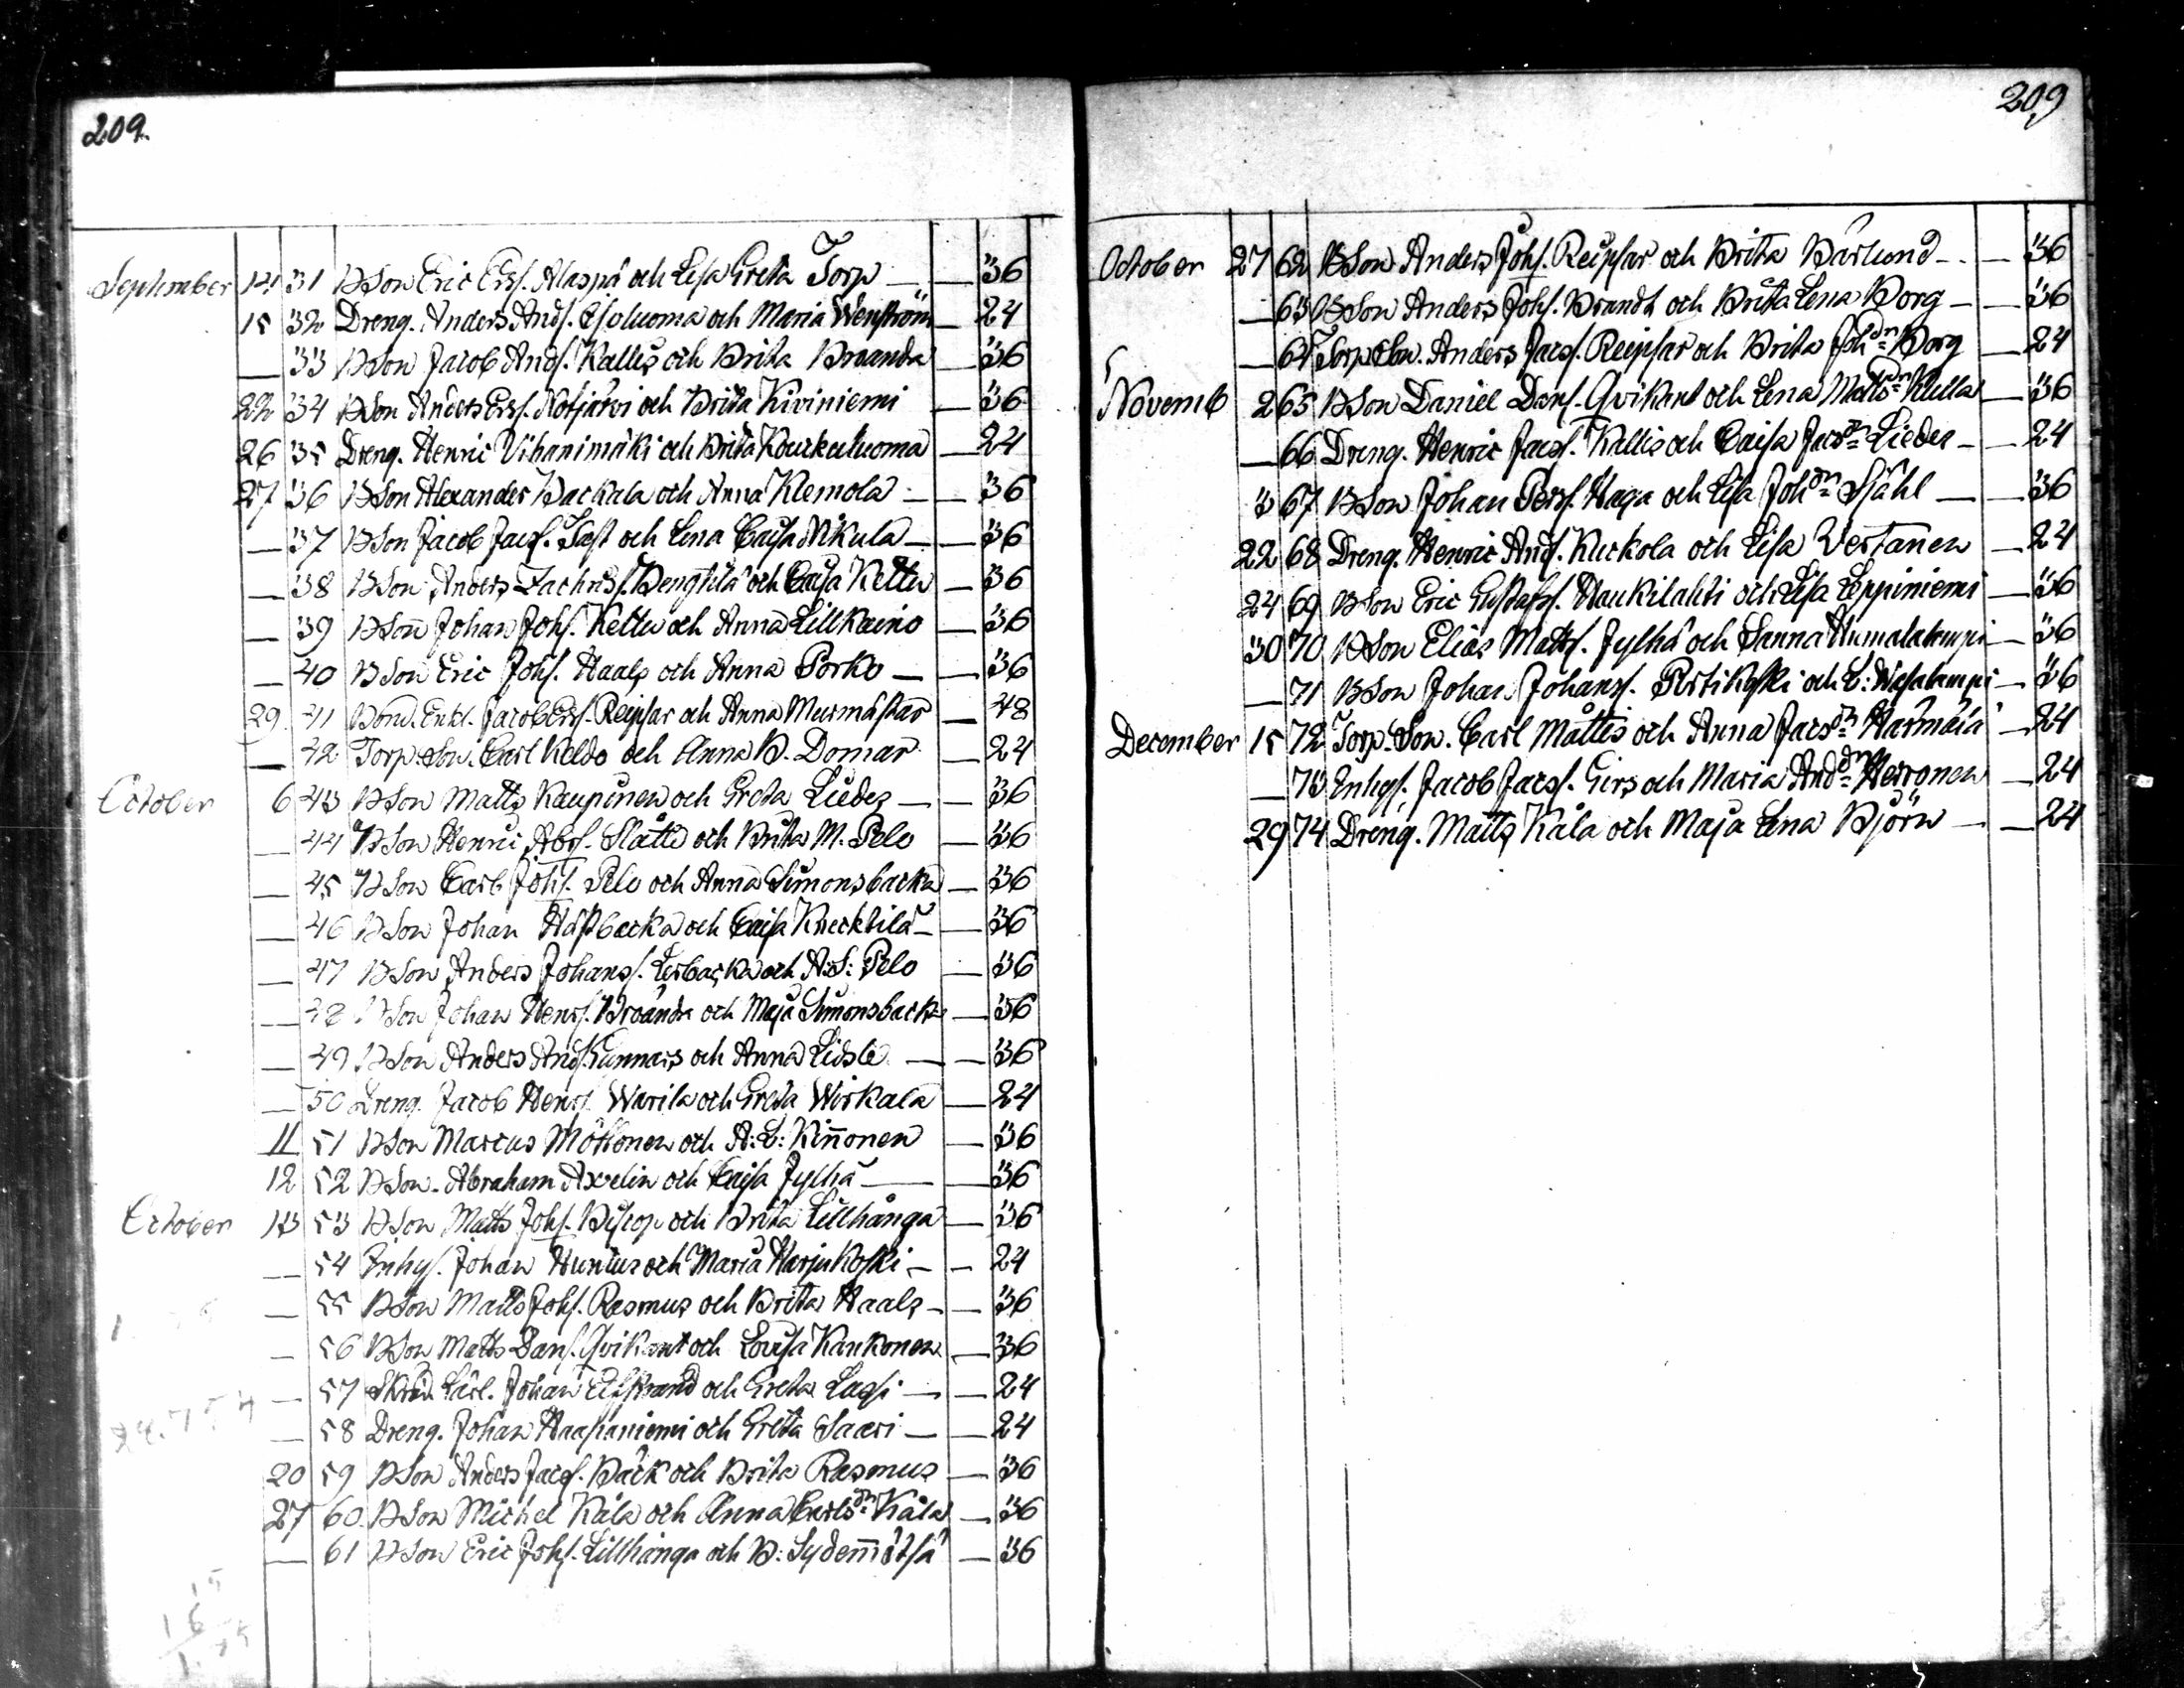 209.
September 14 31 BSon Eric Ersſ. Alaspä och Lisa Greta Torp — — 36
15 32 Dreng. Anders Andſ. Esoluoma och Maria Wenström — 24
— 33 BSon Jacob Andſ. Kallis och Brita Braanda — 36
22 34 BSon Anders Ersſ. Norjärvi och Brita Kiviniemi — 36
26 35 Dreng. Henric Vihanimäki och Brita Kouckuluoma — 24
27 36 BSon Alexander Backala och Anna Klemola — — 36
— 37 BSon Jacob Jacſ. Sast och Lena Caisa Nikula — — 36
— 38 BSon Anders Zachrisſ. Bengtilä och Caisa Kettu — 36
— 39 BSon Johan Johſ. Kettu och Anna Lillkaino — 36
— 40 BSon Eric Johſ. Haals och Anna Porko — — 36
29. 41 Bond. Enkl. Jacob Ersſ. Reipsar och Anna Murmästar — 48
— 42 Torp. Son. Carl Keldo och Anna B. Domar — 24
October 6 43 BSon Matts Kaupinen och Greta Lieder — — 36
— 44 BSon Henric Abrſ. Slåtte och Brita M. Pelo — 36
— 45 BSon Carl Johſ. Pelo och Anna Simonsbacka — 36
— 46 BSon Johan Häſtbacka och Caisa Knecktilä — — 36
— 47 BSon Anders Johansſ. Lerbacka och A:S: Pelo — 36
— 48 BSon Johan Henrſ. Broända och Maja Simonsback — 36
— 49 BSon Anders Andſ. Gunnars och Anna Lidsle — — 36
— 50 Dreng. Jacob Henrſ. Warila och Greta Wirkala — 24
11 51 BSon Marcus Möttönen och A:L: Kin̄onen — 36
12 52 BSon Abraham Axelin och Caisa Jylhä — — 36
October 13 53 BSon Matts Johſ. Biscop och Brita Lillhånga — 36
— 54 Inhyſ. Johan Hunius och Maria Harjukoski — — 24
— 55 BSon Matts Johſ. Rasmus och Brita Haals — — 36
— 56 BSon Matts Danſ. Qvikant och Lovisa Kankonen — 36
— 57 Skräd. Lärl. Johan Elfstrand och Greta Lassi — — 24
— 58 Dreng. Johan Haapaniemi och Greta Saari — — 24
20 59 BSon Anders Jacſ. Bäck och Brita Rasmus — 36
27 60. BSon Michel Kåla och Anna Carlsdr Kåla — 36
— 61 BSon Eric Johſ. Lillhånga och B: Sydenmetsä — 36
209
October 27 62 BSon Anders Johſ. Reipsar och Brita Bärlund — — 36
— 63 BSon Anders Johſ. Brandt och Brita Lena Borg — — 36
— 64 Torp. Son. Anders Jacſ. Reipsar och Brita Johdr Borg — 24
Novemb 2 65 BSon Daniel Danſ. Qvikant och Lena Mattsdr Klulla — 36
— 66 Dreng. Henric Jacſ. Kallis och Caisa Jacsdr Lieder — — 24
3 67 BSon Johan Persſ. Haga och Lisa Johdr Ståhl — — 36
22 68 Dreng. Henric Andſ. Kuckola och Lisa Vertanen — 24
24 69 BSon Eric Gustafsſ. Haukilahti och Lisa Leppiniemi — 36
30 70 BSon Elias Mattsſ. Jylhä och Sanna Humalalampi — 36
— 71 BSon Johan Johansſ. Pertikoski och L: Wasalampi — 36
December 15 72 Torp. Son. Carl Mattes och Anna Jacsdr Harmaia — 24
— 73 Inhyſ. Jacob Jacſ. Girs och Maria Anddr Herronen — 24
29 74 Dreng. Matts Kåla och Maja Lena Björn — — 24